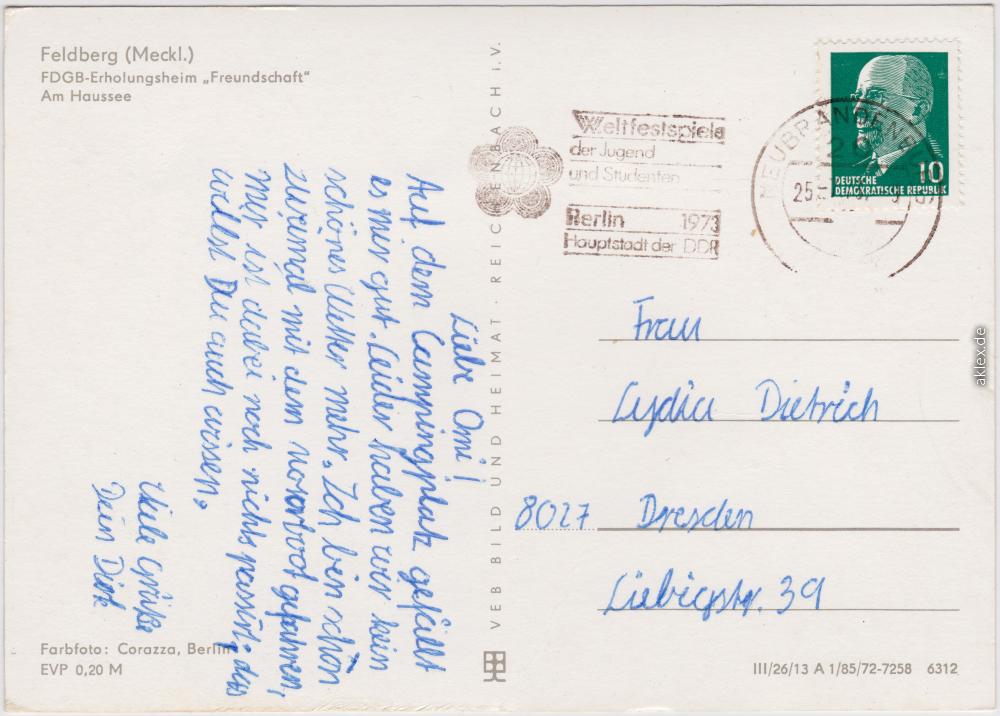 Feldberg (Meckl.)
FDGB-Erholungsheim „Freundschaft“
Am Haussee
Liebe Omi!
Auf dem Campingplatz gefällt
es mir gut. Leider haben wir kein
schönes Wetter mehr. Ich bin schon
zweimal mit dem Motorboot gefahren,
Mir ist dabei noch nichts passirt, das
willst Du auch wissen.
Viele Grüße
Dein Dirk
Farbfoto: Corazza, Berlin
EVP 0,20 M
VEB BILD UND HEIMAT · REICHENBACH I. V.
Weltfestspiele
der Jugend
und Studenten
Berlin 1973
Hauptstadt der DDR
NEUBRANDENB
20
25
10
DEUTSCHE
DEMOKRATISCHE REPUBLIK
Frau
Lydia Dietrich
8027 Dresden
Liebigstr. 39
III/26/13 A 1/85/72-7258 6312
aklex.de